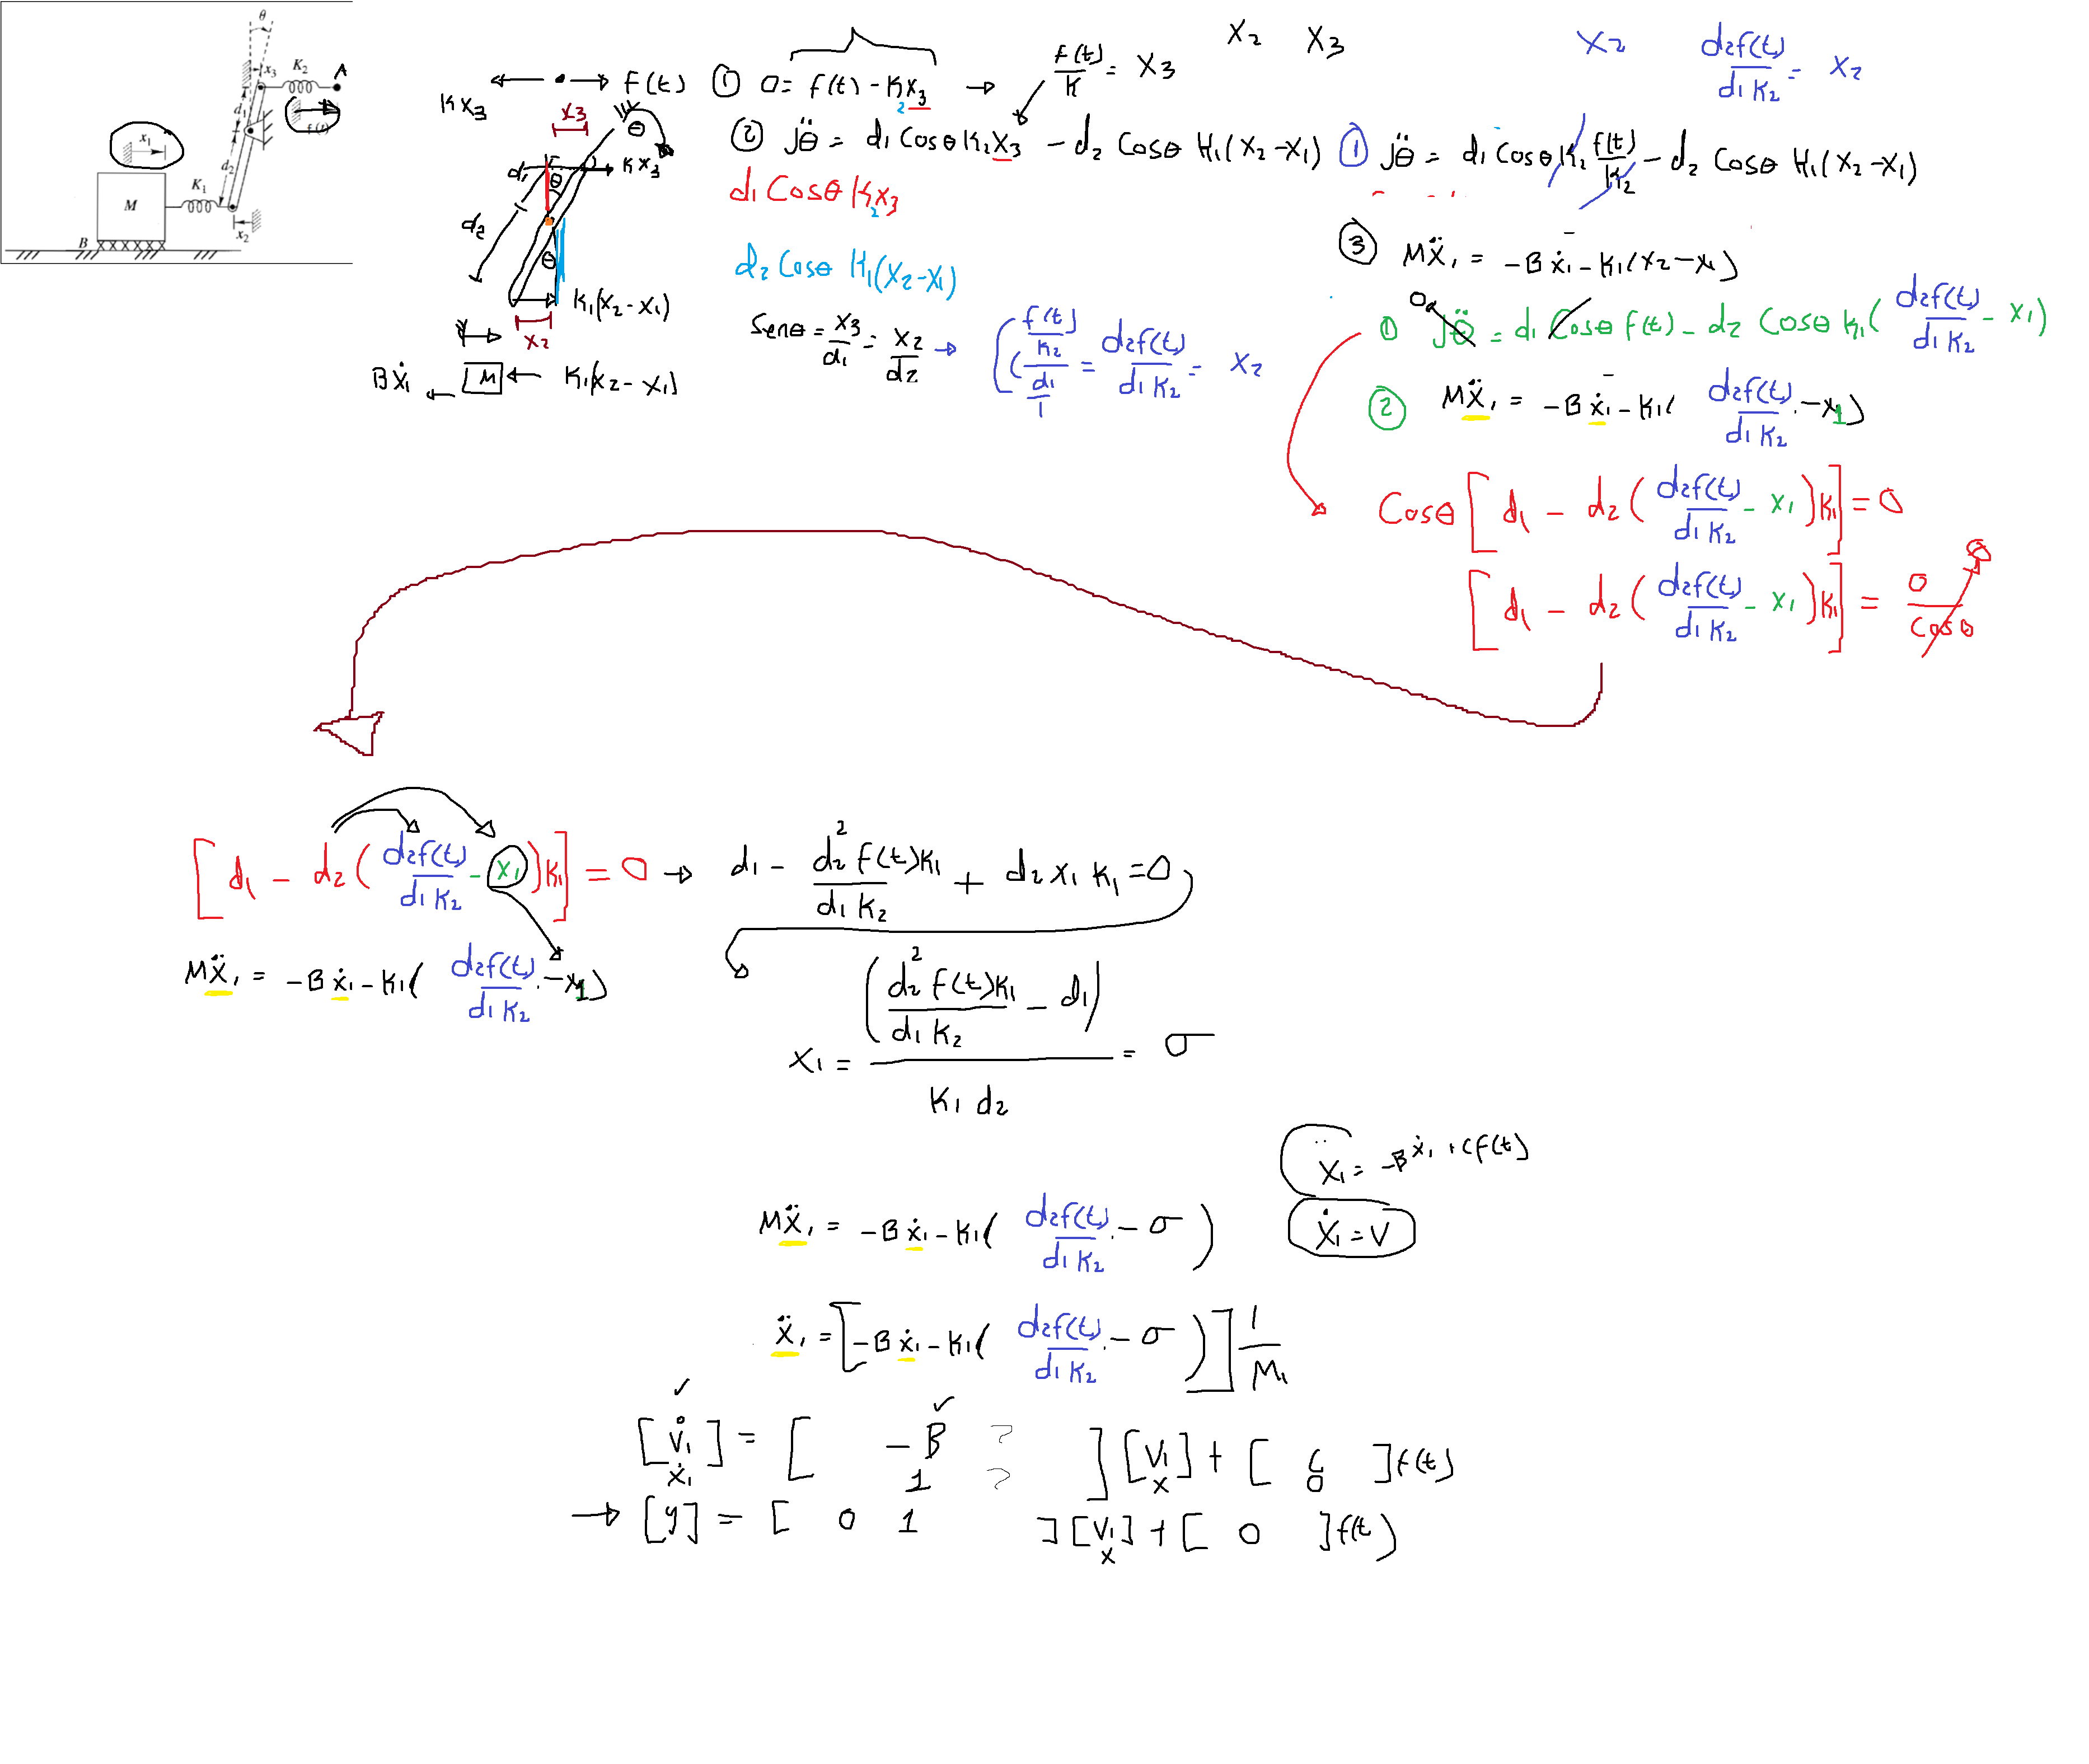 θ
x₃ K₂ A
d₁
f(t)
x₁
d₂
K₁
M
x₂
B
Kx₃ f(t)
x₃
θ
d₁ θ Kx₃
d₂
θ
K₁(x₂-x₁)
x₂
Bẋ₁ M K₁(x₂-x₁)
① 0= f(t) - K₂x₃ → f(t)/K = x₃
② Jθ̈ = d₁ Cosθ K₂x₃ - d₂ Cosθ K₁(x₂-x₁)
d₁ Cosθ K₂x₃
d₂ Cosθ K₁(x₂-x₁)
Senθ = x₃/d₁ = x₂/d₂ → (f(t)/K₂)/(d₁/1) = d₂f(t)/d₁K₂ = x₂
x₂ x₃
x₂ d₂f(t)/d₁K₂ = x₂
① Jθ̈ = d₁ Cosθ K₂ f(t)/K₂ - d₂ Cosθ K₁(x₂-x₁)
③ Mẍ₁ = -Bẋ₁ - K₁(x₂-x₁)
0
① Jθ̈ = d₁ Cosθ f(t) - d₂ Cosθ K₁(d₂f(t)/d₁K₂ - x₁)
② Mẍ₁ = -Bẋ₁ - K₁(d₂f(t)/d₁K₂ - x₁)
Cosθ[d₁ - d₂(d₂f(t)/d₁K₂ - x₁)K₁] = 0
[d₁ - d₂(d₂f(t)/d₁K₂ - x₁)K₁] = 0/Cosθ 0
[d₁ - d₂(d₂f(t)/d₁K₂ - x₁)K₁] = 0 → d₁ - d₂²f(t)K₁/d₁K₂ + d₂x₁K₁ = 0
Mẍ₁ = -Bẋ₁ - K₁(d₂f(t)/d₁K₂ - x₁)
x₁ = (d₂²f(t)K₁/d₁K₂ - d₁)/K₁d₂ = σ
ẍ₁ = -Bẋ₁ + Cf(t)
ẋ₁ = V
Mẍ₁ = -Bẋ₁ - K₁(d₂f(t)/d₁K₂ - σ)
ẍ₁ = [-Bẋ₁ - K₁(d₂f(t)/d₁K₂ - σ)] 1/M₁
[v̇₁] = [ -B ? ][v₁] + [ C ]f(t)
ẋ₁ 1 ? x 0
→ [y] = [ 0 1 ][v₁] + [ 0 ]f(t)
x